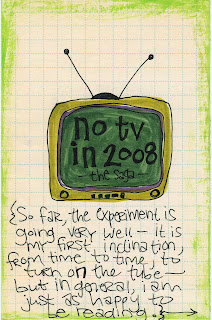 no tv
in 2008
- the saga -
{So far, the experiment is
going very well - it is
my first inclination,
from time to time, to
turn on the tube -
but in general, i am
just as happy to
be reading.}